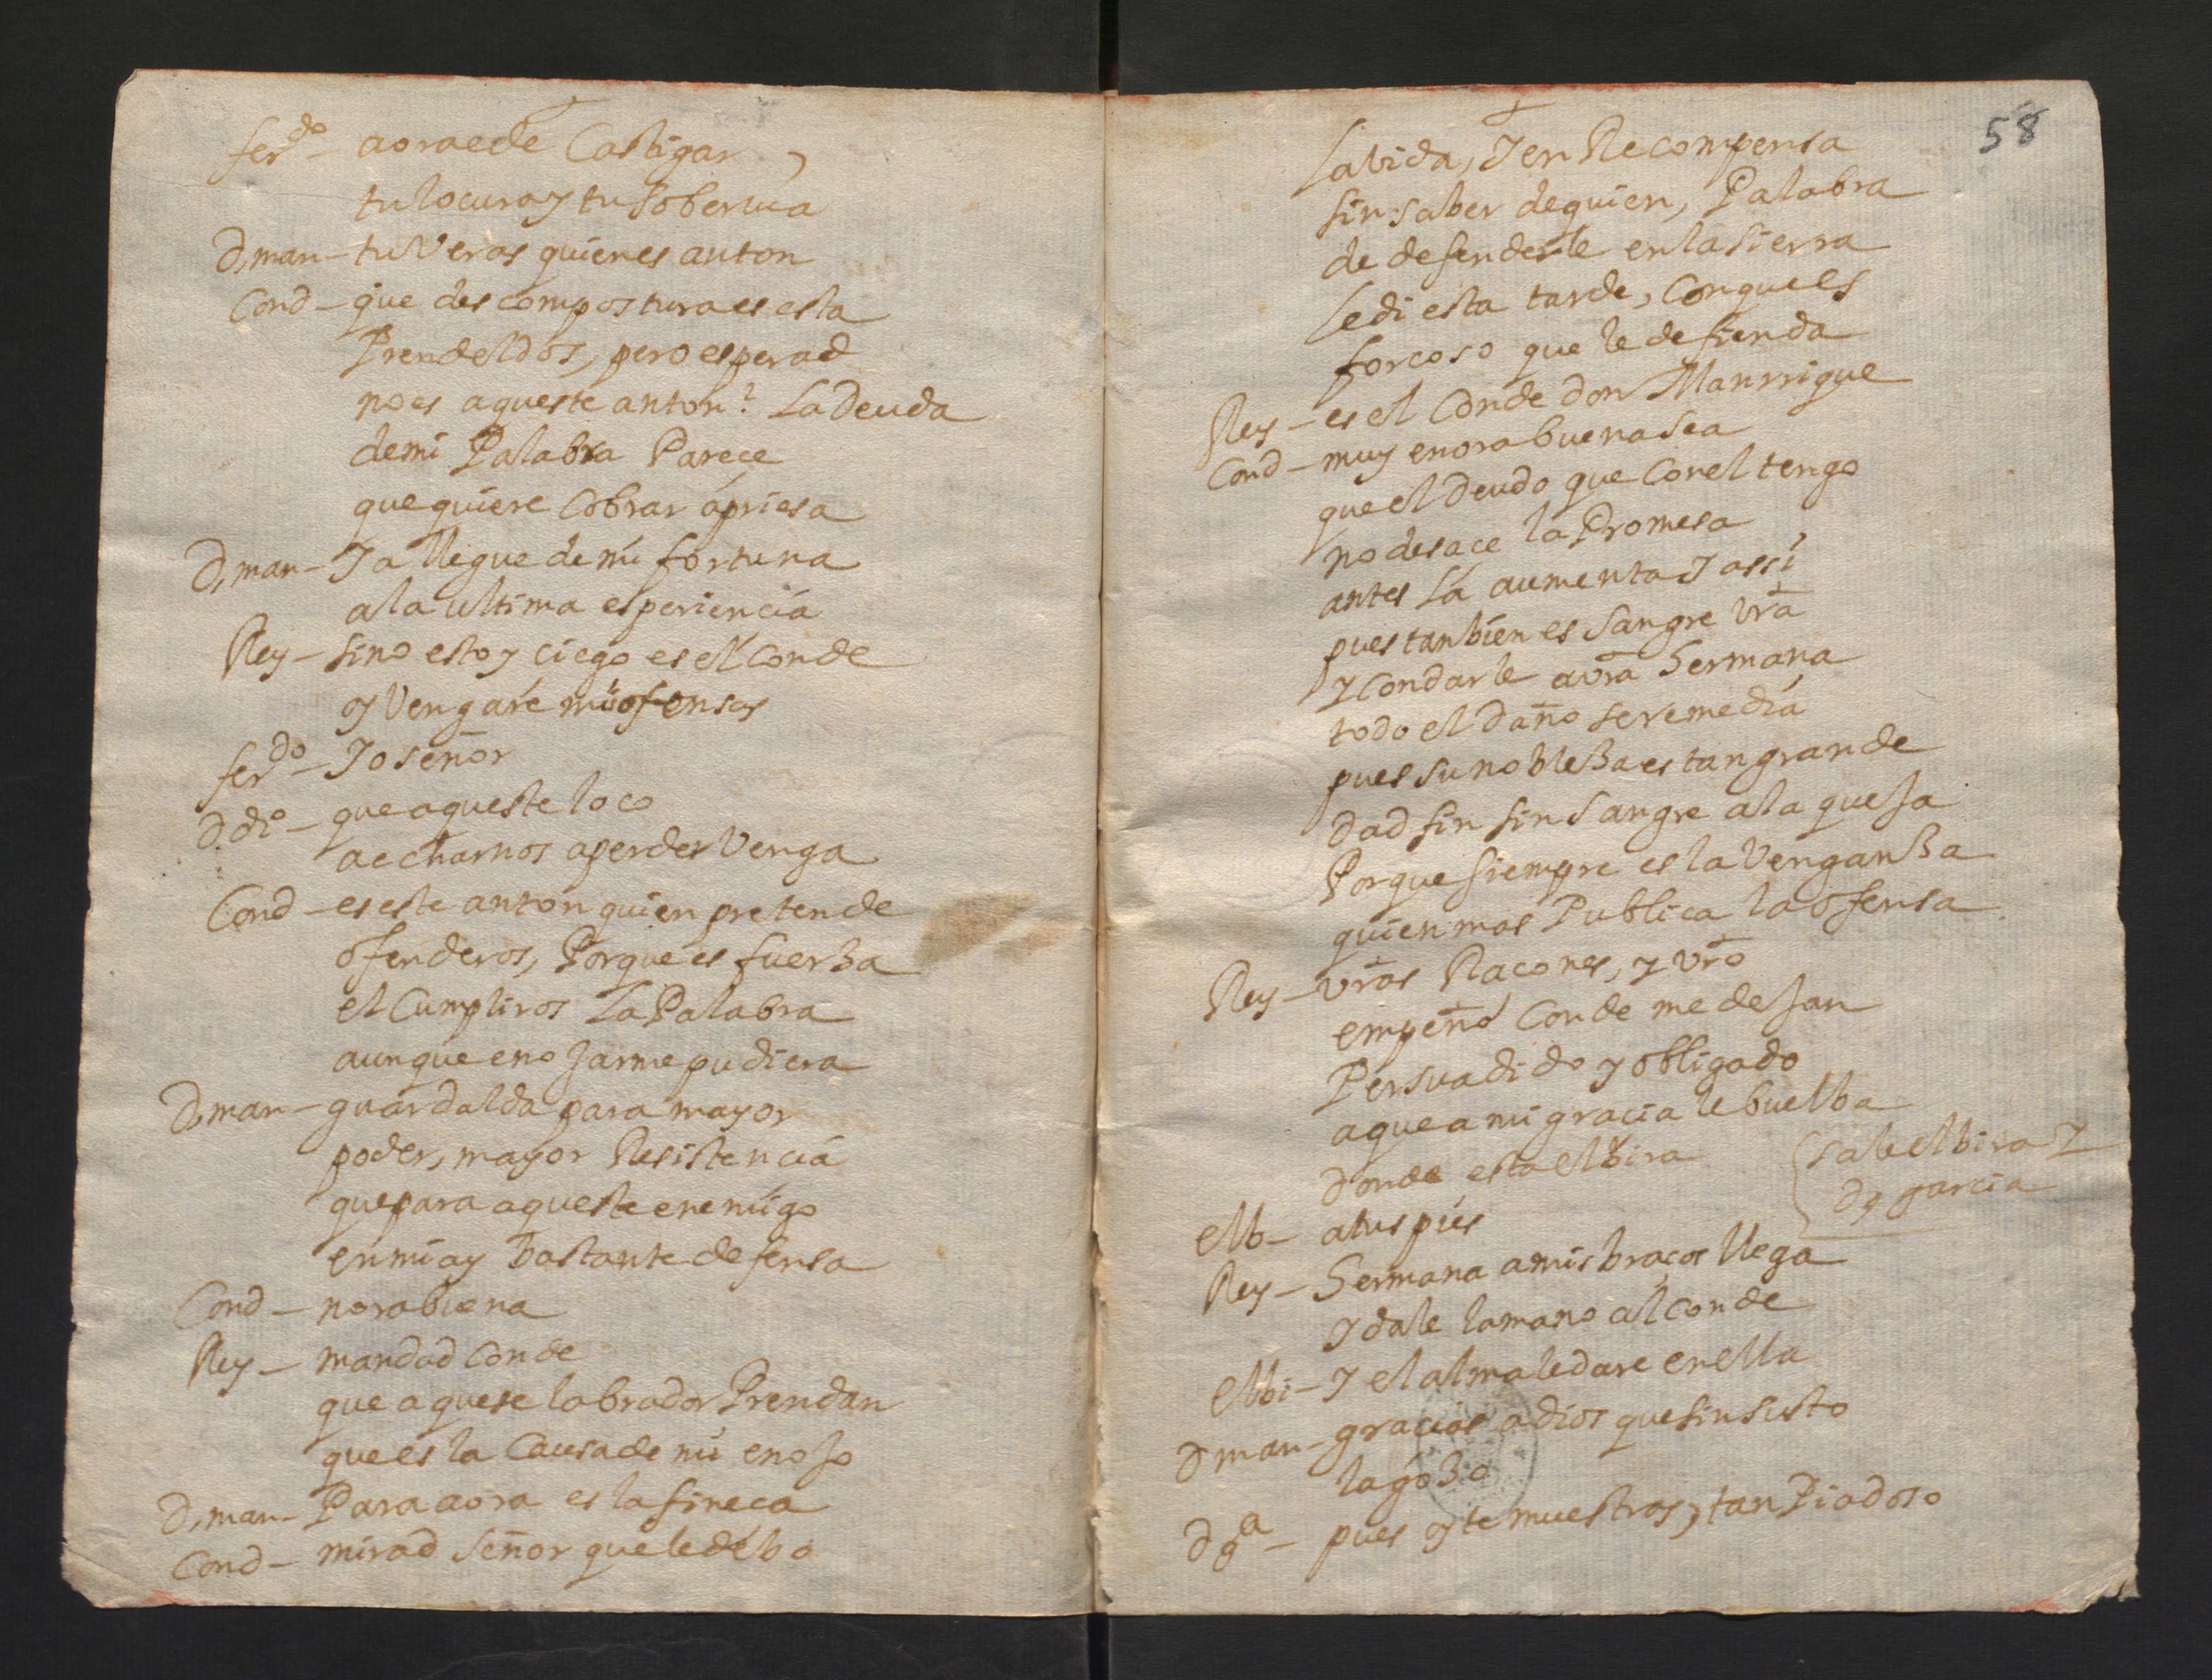 ferdo - aora e de Castigar
tu locura y tu soberuia
D, man - tu Veras quien es anton
Cond - que descompostura es esta
Prendeldos, pero esperad
no es aqueste anton? La Deuda
de mi Palabra Parece
que quiere Cobrar apriesa
D, man - Ja llegue de mi fortuna
a la ultima esperiencia
Rey - sino estoy ciego es el conde
oy Vengare mis ofensas
ferdo - Jo señor
D. dio - que aqueste loco
a echarnos a perder Venga
Cond - es este anton quien pretende
ofenderos, Porque es fuerza
el Cumpliros La Palabra
aunque enojarme pudiera
D, man - guardalda para mayor
poder, mayor Resistencia
que para aqueste enemigo
en mi ay bastante defensa
Cond - norabuena
Rey - mandad Conde
que aquese labrador Prendan
que es la Causa de mi enojo
D, man - Para aora es la fineca
Cond - mirad señor que le debo
58
La vida, J en Recompensa
sin saber de quien, Palabra
de defenderle en la sierra
Le di esta tarde, Con que es
forcoso que le defienda
Rey - es el Conde Don Manrrique
Cond - muy enorabuena sea
que el Deudo que Con el tengo
no desace la Promesa
antes La aumenta J assi
pues tanbien es sangre vra
y Con darle a vra Hermana
todo el Daño se remedia
pues su nobleza es tan grande
Dad fin sin Sangre a la queja
Porque siempre es la Venganza
quien mas Publica la ofensa
Rey - vras Racones, y vro
empeño Conde me dejan
Persuadido y obligado
a que a mi gracia le buelba
Donde esta elbira
(sale elbira J
Dg garcia
elb - a tus pies
Rey - Hermana a mis bracos llega
J dale la mano al conde
elbi - J el alma le dare en ella
D man - gracias a dios que sin susto
la gozo
D ga - pues oy te muestras, tan Piadoso